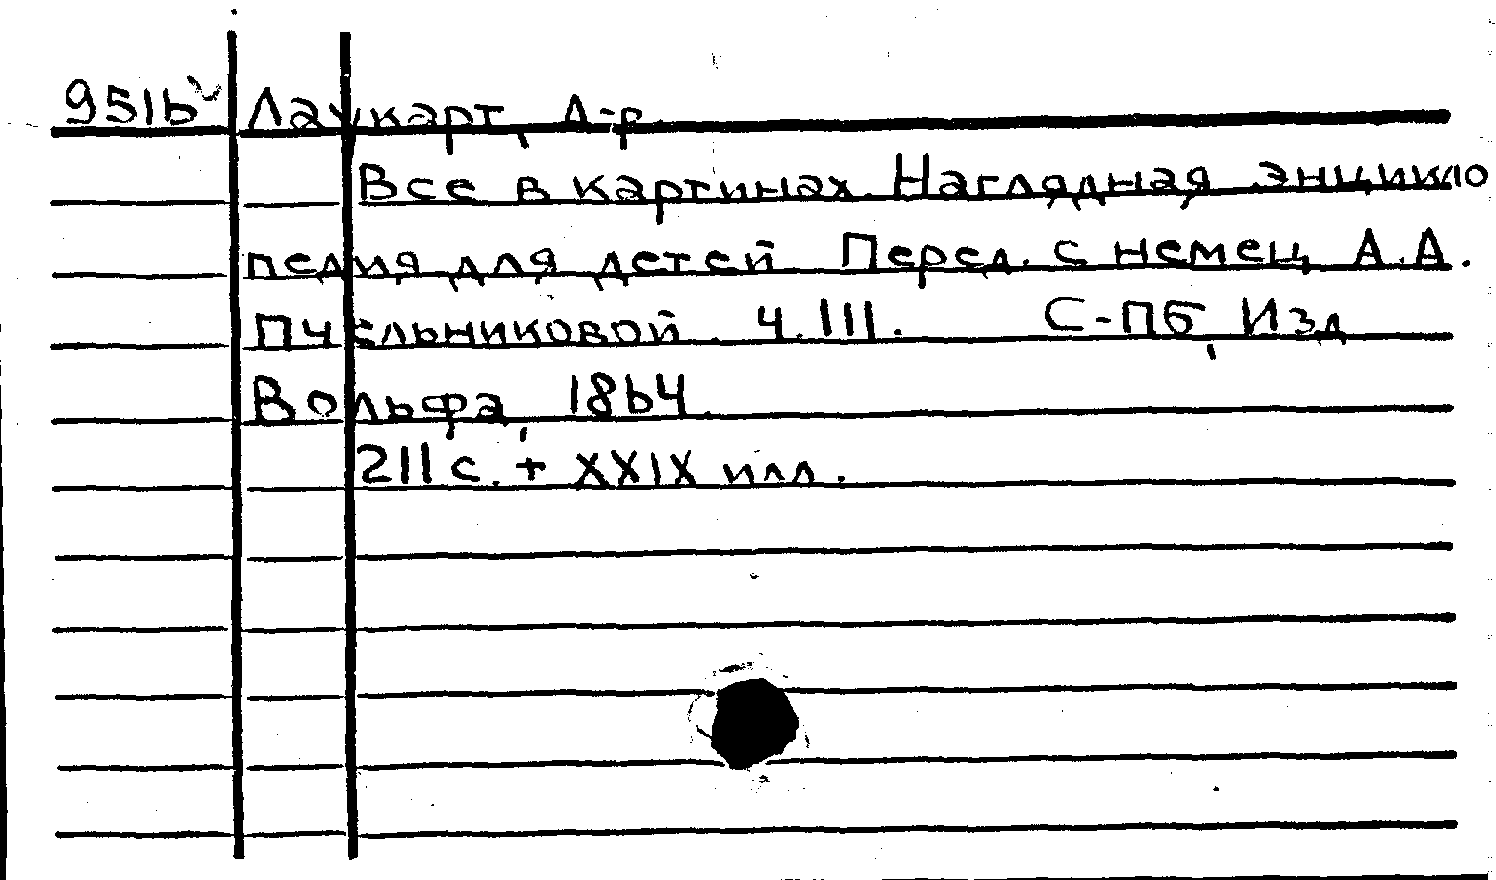 9516 Лаукарт, Д-р.
Все в картинах. Наглядная энцикло
педия для детей. Перед. с немец. А.А.
Пчельниковой. Ч.III. С-Пб, Изд
Вольфа, 1864.
211 с. + XXIX илл.